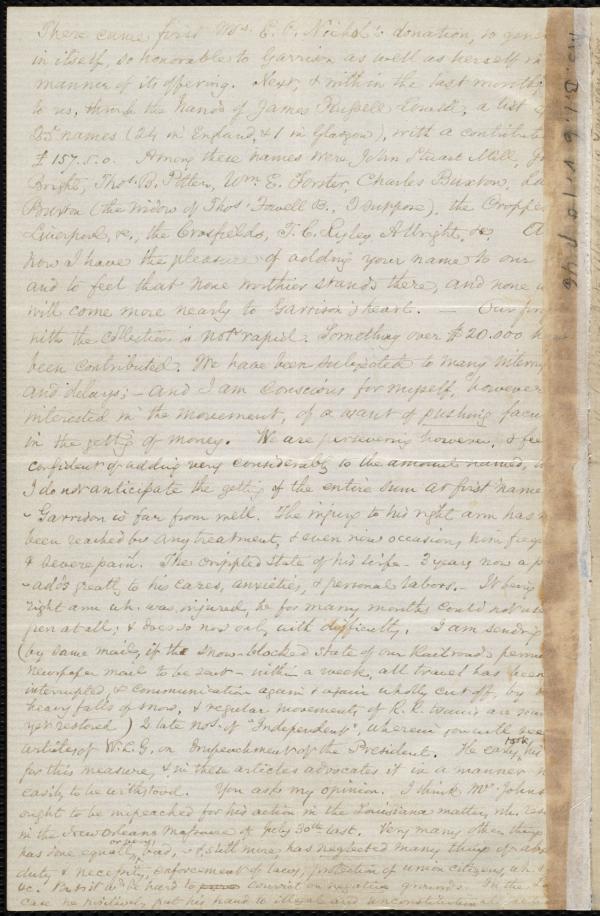 There came first Mrs. E. P. Nichol's donation, so gene
in itself, so honorable to Garrison as well as herself in
manner of its offering. Next, & within the last month,
to us, through the hands of James Russell Lowell, a list
25 names (24 in England, & 1 in Glasgow), with a contribut
£157.5.0. Among these names were John Stuart Mill, Jo
Bright, Thos. B. Potter, Wm. E. Forster, Charles Buxton, La
Buxton (the widow of Thos. Fowell B., I suppose), the Cropper
Liverpool, &c., the Crosfields, T. C. Ryley, Albright, &c
now I have the pleasure of adding your name to our
and to feel that none worthier stands there, and none
will come more nearly to Garrison's heart. — Our pro
with the collection is not rapid. Something over $20.000 h
been contributed. We have been subjected to many interru
and delays; – and I am conscious for myself, however
interested in the movement, of a want of pushing facu
in the getting of money. We are persevering however, & fee
confident of adding very considerably to the amount named,
I do not anticipate the getting of the entire sum at first name
– Garrison is far from well. The injury to his right arm has n
been reached by any treatment, & even now occasions him freq
& severe pain. The crippled state of his wife – 3 years now a p
– adds greatly to his cares, anxieties, & personal labors. – It being
right arm wh. was injured, he for many months could not use
pen at all; & does so now only with difficulty. I am sending
(by same mail, if the snow-blocked state of our Railroads permi
newspaper mail to be sent – within a week, all travel has been
interrupted, & communication again & again wholly cut off, by
heavy falls of snow, & regular movements of R. R. trains are
yet restored) 2 late nos. of "Independent", wherein you will see
articles of W.L.G. on Impeachment of the President. He early
for this measure, & in these articles advocates it in a manner n
easily to be withstood. You ask my opinion. I think Mr. Johns
ought to be impeached for his action in the Louisiana matter,
in the New Orleans Massacre of July 30th last. Very many other things
has done equally, or very, bad, & still more, has neglected many things of
duty & necessity, enforcement of laws, protection of union citizens,
&c. But it wd. be hard to convict on negative grounds. In the
case he positively put his hand to illegal and unconstitutional
No B.1.6 v.10 p46